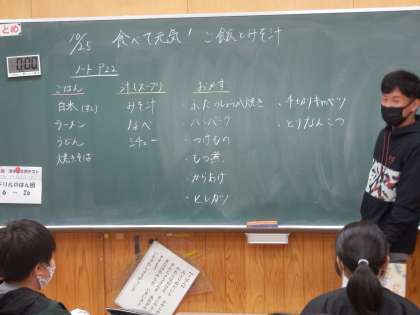 とめ
10/25 食べて元気! ご飯とみそ汁
ノート P22
0:00
ごはん
白米(はく)
ラーメン
うどん
焼きそば
汁(スープ)
みそ汁
なべ
シチュー
おかず
・ぶたのしょうが焼き
・ハンバーグ
・つけもの
・もつ煮
・からあげ
・ヒレカツ
・千切りキャベツ
・とりなんこつ
ドリルのはん囲
6 ー 26